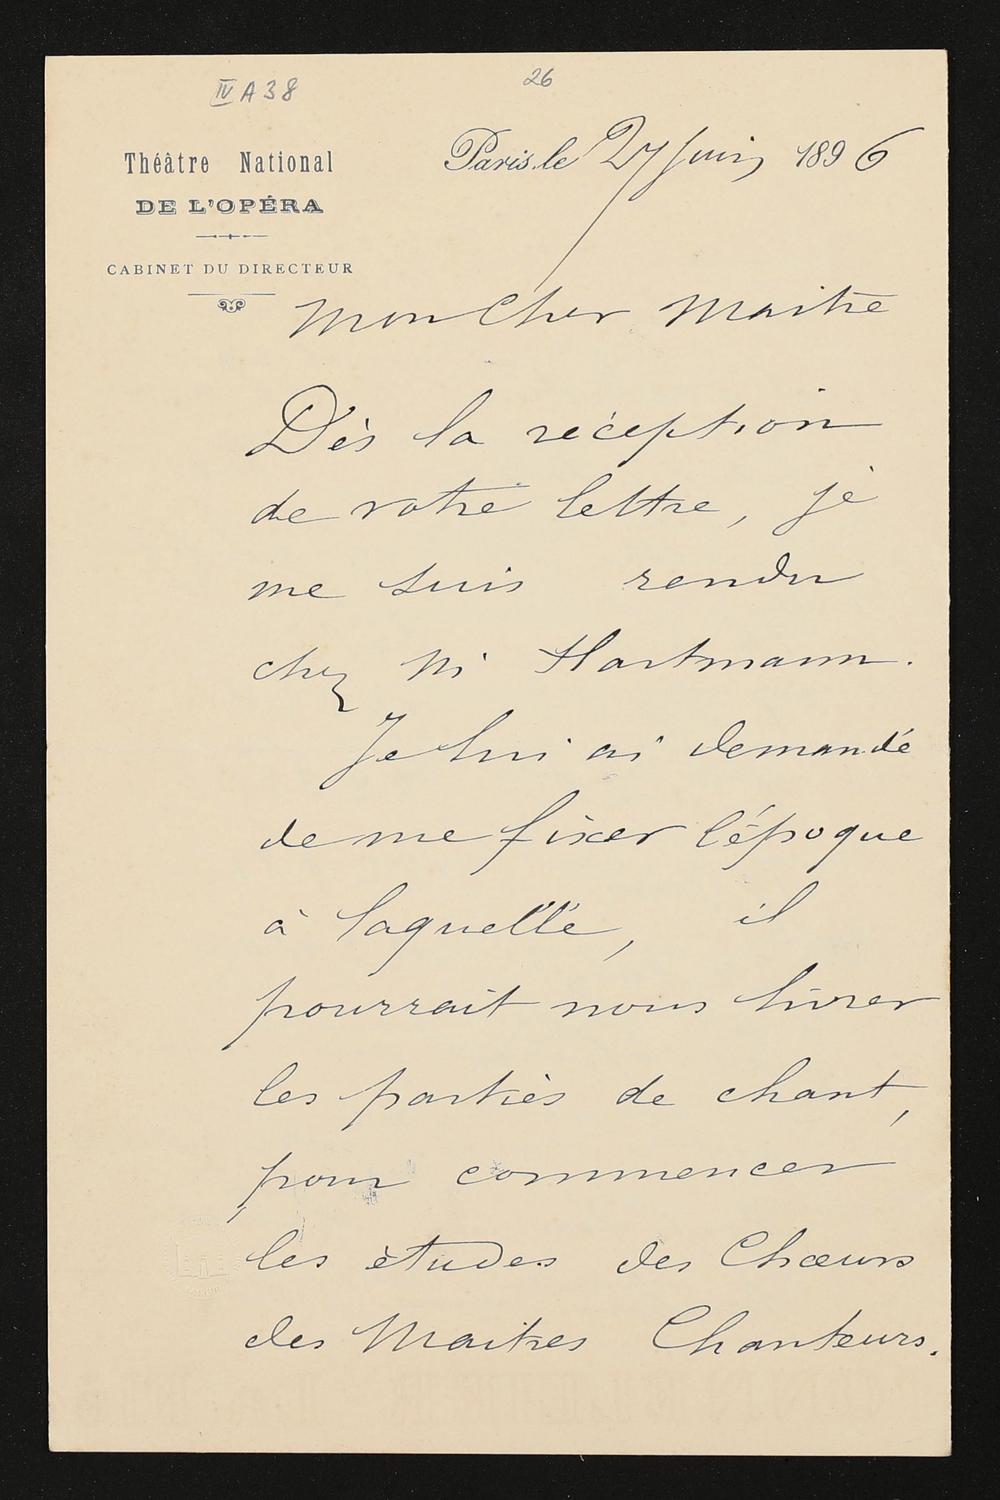 IV A 38
26
Théâtre National
DE L'OPÉRA
CABINET DU DIRECTEUR
Paris, le 27 Juin 1896
Mon Cher Maitre
Dès la réception
de votre lettre, je
me suis rendu
chez Mr Hartmann.
Je lui ai demandé
de me fixer l'époque
à laquelle, il
pourrait nous livrer
les parties de chant,
pour commencer
les études des Chœurs
des Maitres Chanteurs.